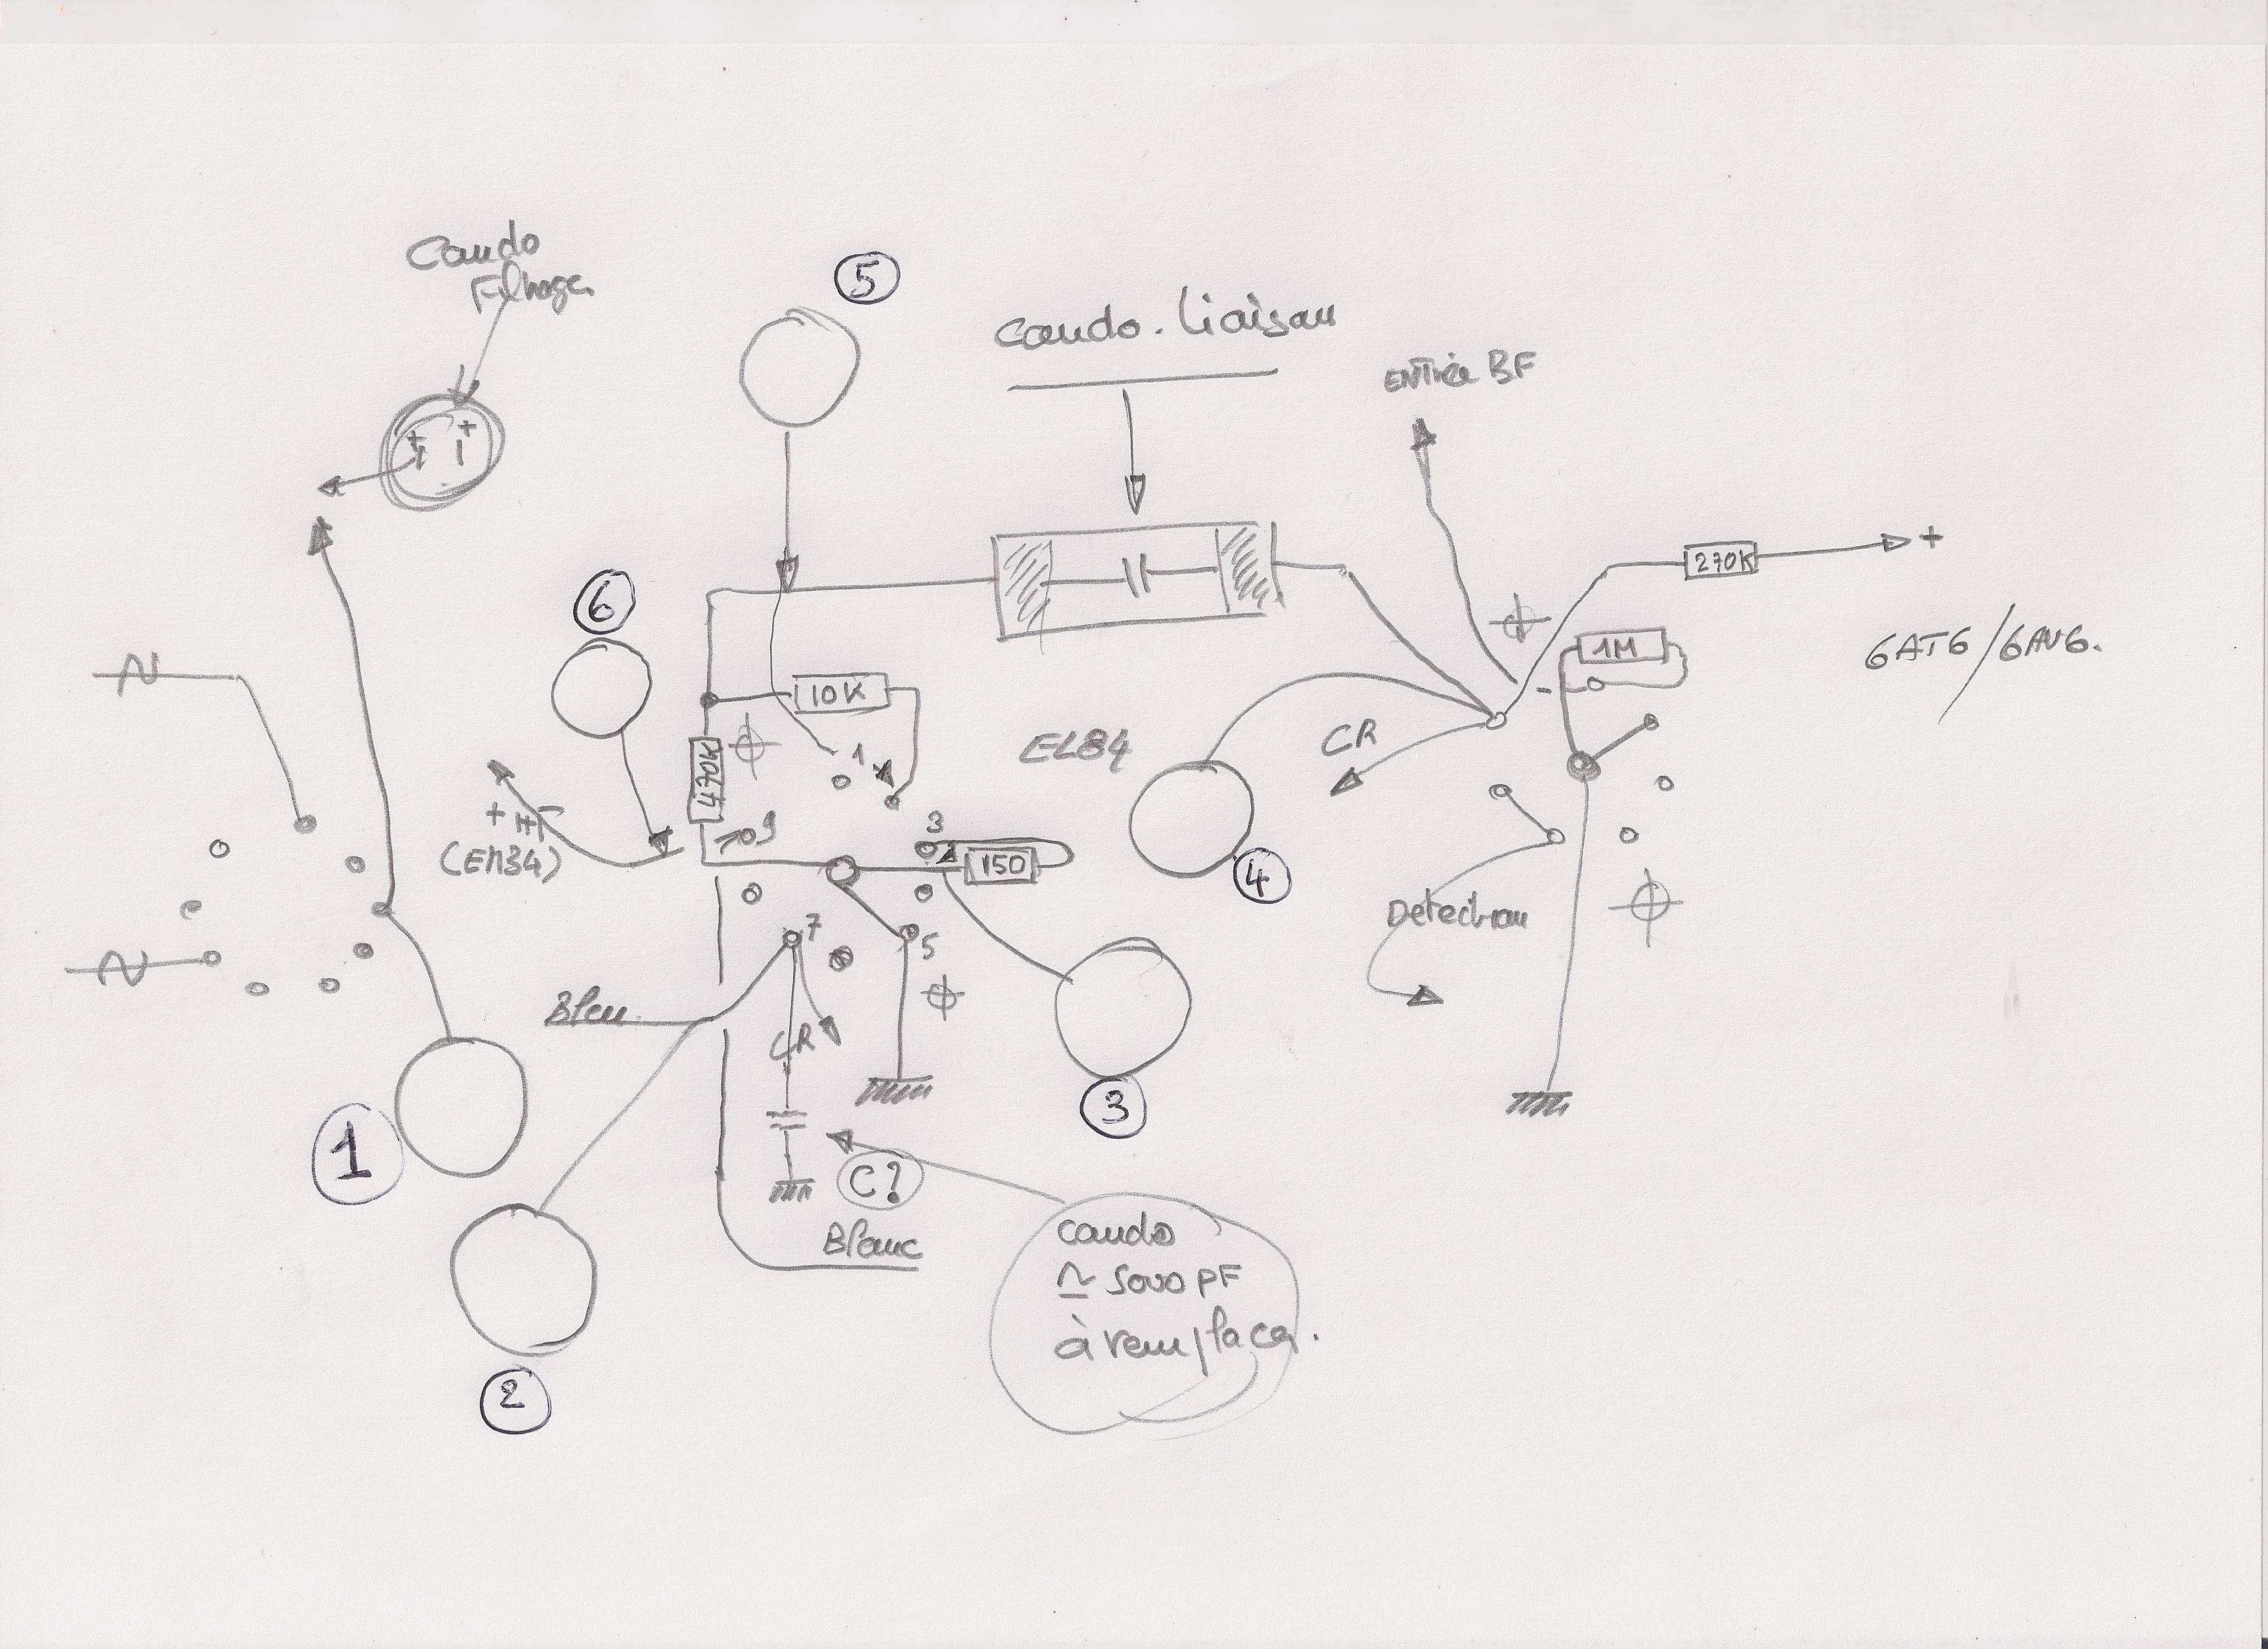 Condo
Filtrage
5
Condo. Liaison
Entrée BF
+ +
270K
+
6
1M
6AT6/6AV6.
10K
EL84
CR
1
470K
+ HT
(EM34)
9
3
150
4
7
5
Détection
Bleu
CR
3
1
C?
Blanc
condo
≃ 5000 PF
à remplacer.
2